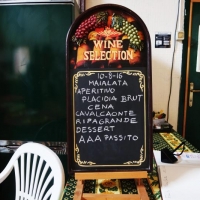 WINE
SELECTION
10-8-16
MAIALATA
APERITIVO
PLACIDIA BRUT
CENA
CAVALCAONTE
RIPAGRANDE
DESSERT
AAA PASSITO